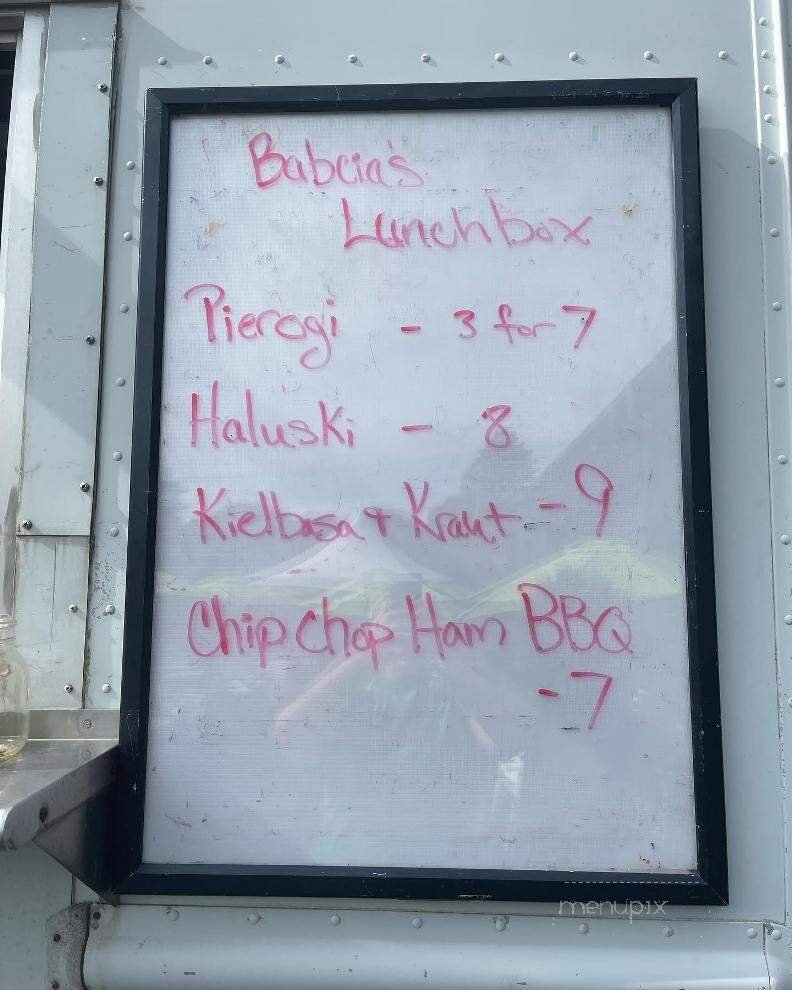 Babcia's
Lunchbox
Pierogi - 3 for 7
Haluski - 8
Kielbasa + Kraut - 9
Chip Chop Ham BBQ
- 7
menupix